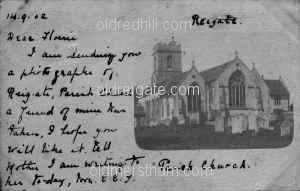 www.oldredhill.com
14.9.02
Reigate.
Dear Florrie
I am sending you
a photograph of
Reigate, Parish Church
a friend of mine has
taken, I hope you
will like it. Tell
Mother I am writing to
her to-day,
Parish Church.
www.oldredhill.com